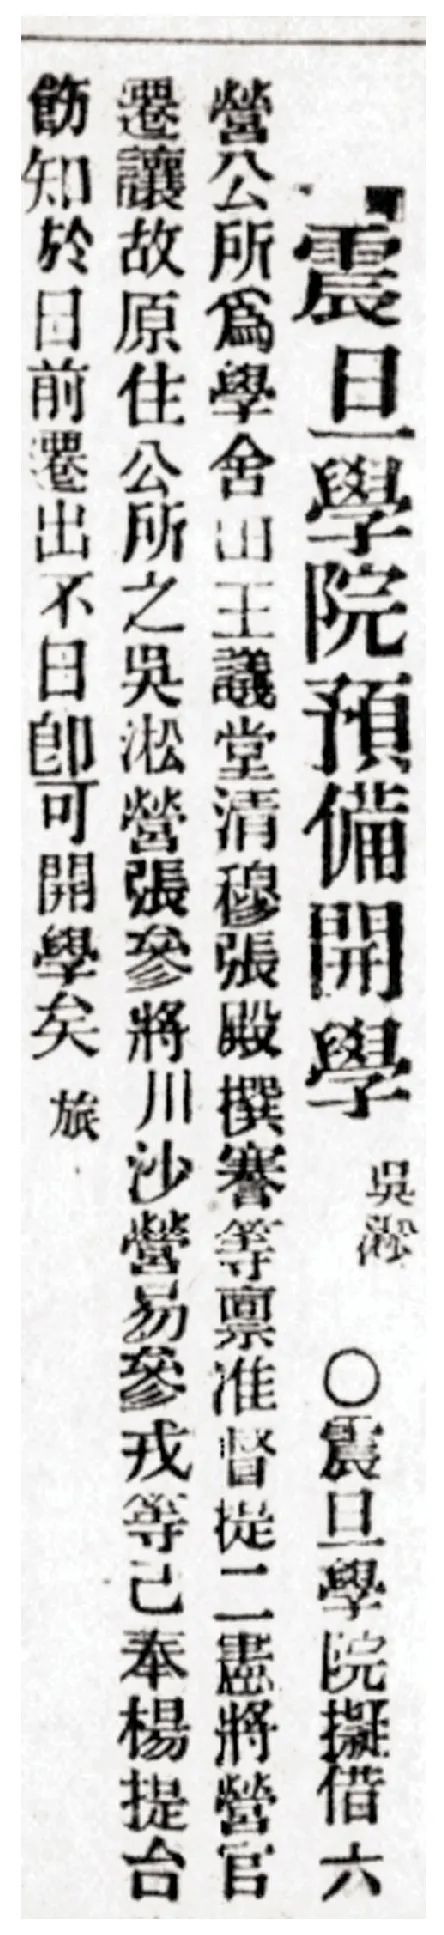 震旦學院預備開學 吳淞 ○震旦學院擬借六
營公所爲學舍由王議堂清穆張殿撰謇等禀准督提二憲將營官
遷讓故原住公所之吳淞營張參將川沙營易參戎等已奉楊提台
飭知於日前遷出不日卽可開學矣 旅